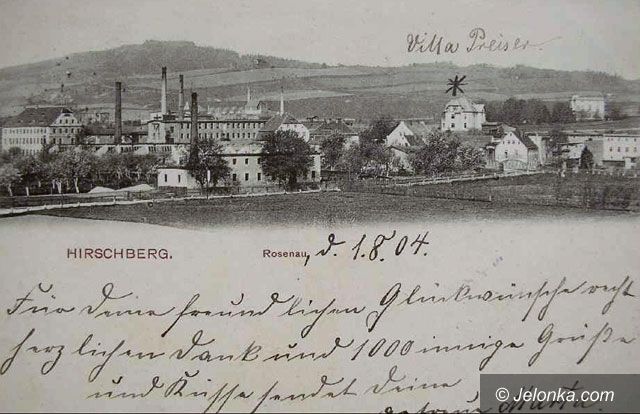 Villa Preiser
HIRSCHBERG.
Rosenau, d. 1.8.04.
Für Deine freundlichen Glückwünsche recht
herzlichen Dank und 1000 innige Grüße
und Küsse sendet Deine
Martha.
© Jelonka.com